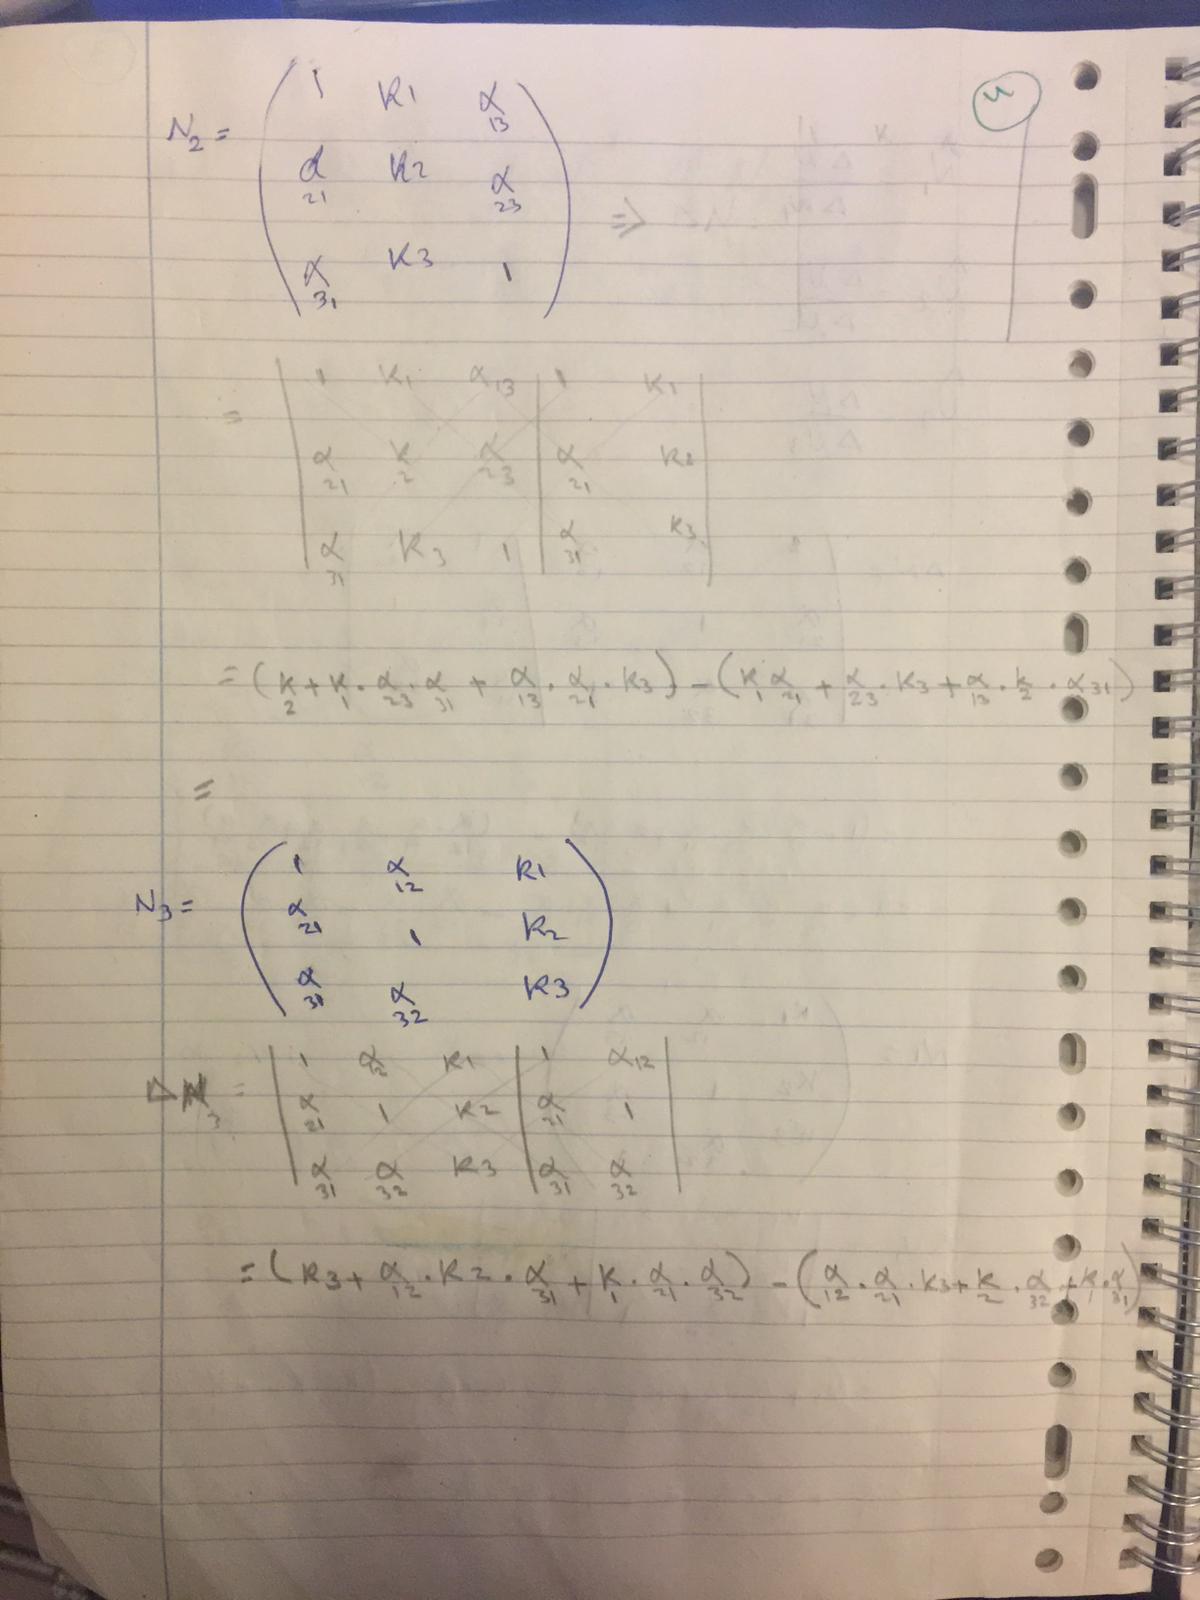 4
N₂ = ( 1 K1 α₁₃
α₂₁ K2 α₂₃ ⇒
α₃₁ K3 1 )
= | 1 K₁ α₁₃ | 1 K₁ |
| α₂₁ K₂ α₂₃ | α₂₁ K₂ |
| α₃₁ K₃ 1 | α₃₁ K₃ |
= (K₂ + K₁ · α₂₃ · α₃₁ + α₁₃ · α₂₁ · K₃) - (K₁ α₂₁ + α₂₃ · K₃ + α₁₃ · K₂ · α₃₁)
=
N₃ = ( 1 α₁₂ K1
α₂₁ 1 K₂
α₃₁ α₃₂ K3 )
Δ ₃ = | 1 α₁₂ K1 | 1 α₁₂ |
| α₂₁ 1 K2 | α₂₁ 1 |
| α₃₁ α₃₂ K3 | α₃₁ α₃₂ |
= (K3 + α₁₂ · K2 · α₃₁ + K₁ · α₂₁ · α₃₂) - (α₁₂ · α₂₁ · K3 + K₂ · α₃₂ + K₁ · α₃₁)